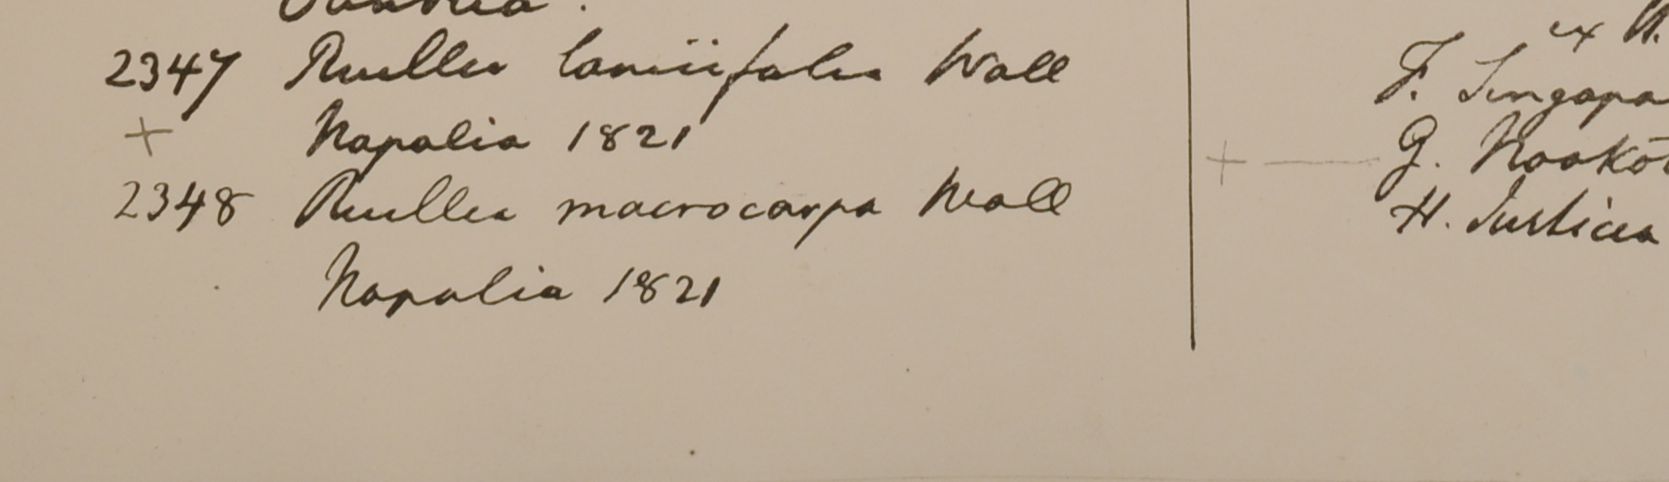 2347 Ruellia lamiifolia Wall
+ Napalia 1821
2348 Ruellia macrocarpa Wall
Napalia 1821
ex
F. Singapo
+ — G. Nookõ
H. Justicia